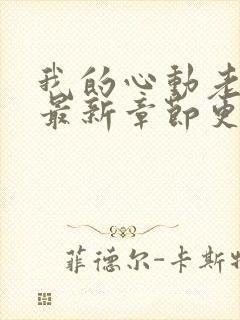 我的心动老
最新章节更
菲德尔-卡斯特